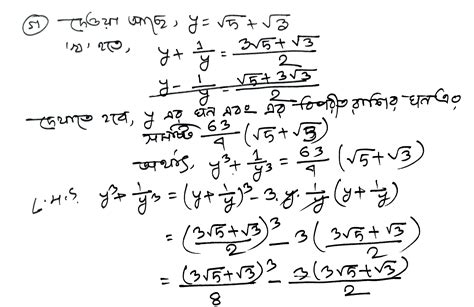 (গ) দেওয়া আছে, y = √5 + √3
'খ' হতে, y + 1/y = (3√5 + √3)/2
y - 1/y = (√5 + 3√3)/2
দেখাতে হবে, y এর ঘন এবং এর বিপরীত রাশির ঘন এর
সমষ্টি 63/4 (√5 + √3)
অর্থাৎ, y³ + 1/y³ = 63/4 (√5 + √3)
L.H.S. y³ + 1/y³ = (y + 1/y)³ - 3.y.1/y (y + 1/y)
= ((3√5 + √3)/2)³ - 3 ((3√5 + √3)/2)
= (3√5 + √3)³/8 - 3(3√5 + √3)/2